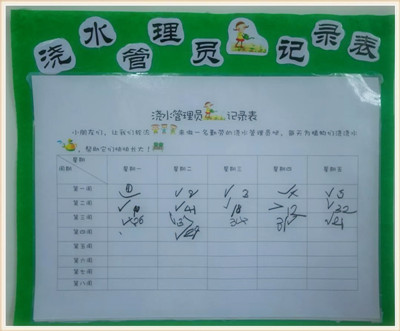 浇水管理员记录表
浇水管理员记录表
小朋友们，让我们轮流来做一名勤劳的浇水管理员吧，每天为植物们浇浇水
，帮助它们快快长大！
星期 星期一 星期二 星期三 星期四 星期五
周期
第一周 ① ✓2 ✓3 ✓5
第二周 ✓41 ✓18 12 ✓32
第三周 26 3 34 31 ✓21
第四周 ✓29
第五周
第六周
第七周
第八周